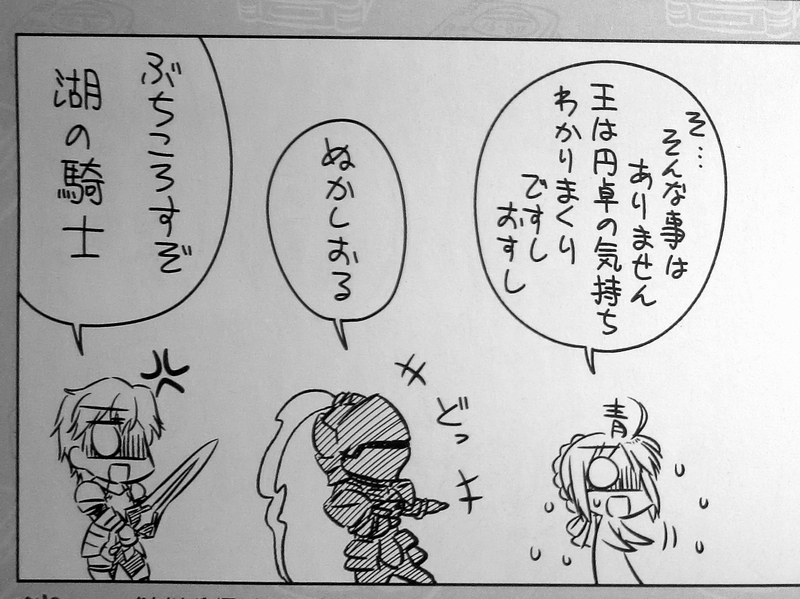 そ…
そんな事は
ありません
王は円卓の気持ち
わかりまくり
ですし
おすし
青
ぬかしおる
どっ
ぶちころすぞ
湖の騎士